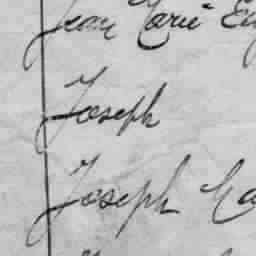 Jean Marie
Joseph
Joseph